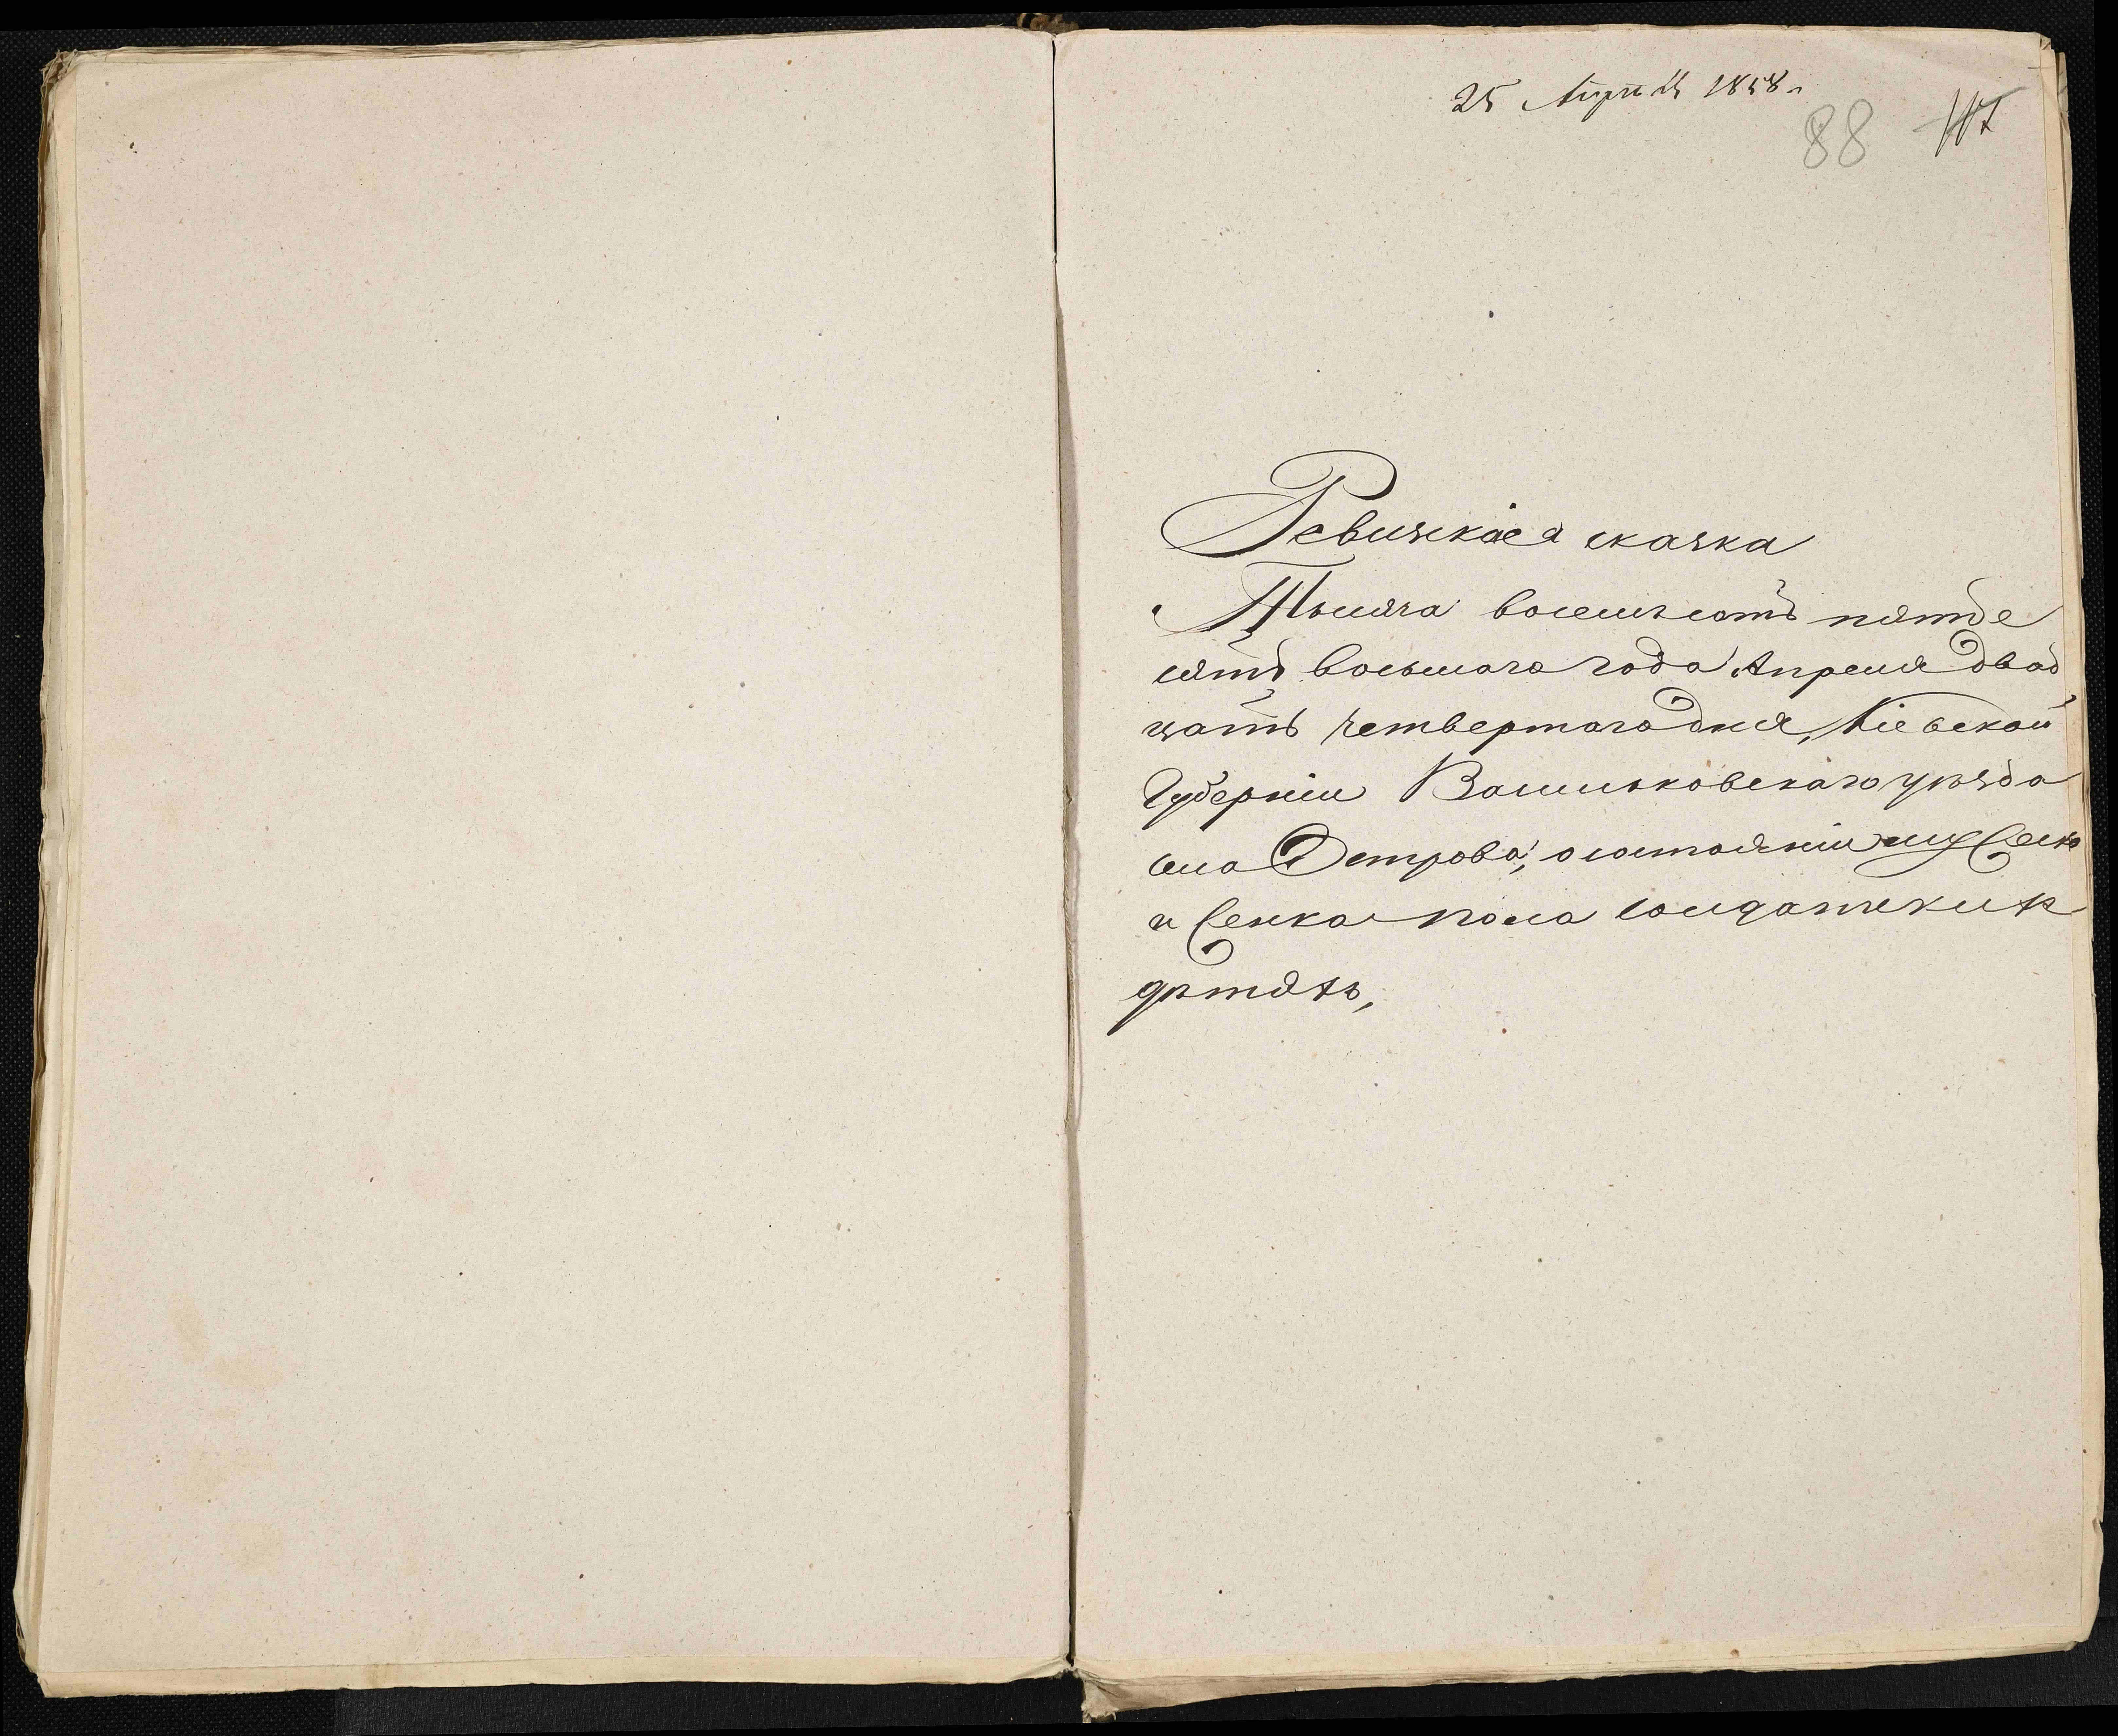 25 Апрѣля 1858 г
88
Ревизская сказка
Тысяча восемьсотъ пятде
сятъ восьмаго года Апреля двад
цать четвертаго дня, Кіевской
Губерніи Васильковскаго уѣзда
села Острова, о состоящихъ муж:
и женска пола солдатскихъ
дѣтяхъ,